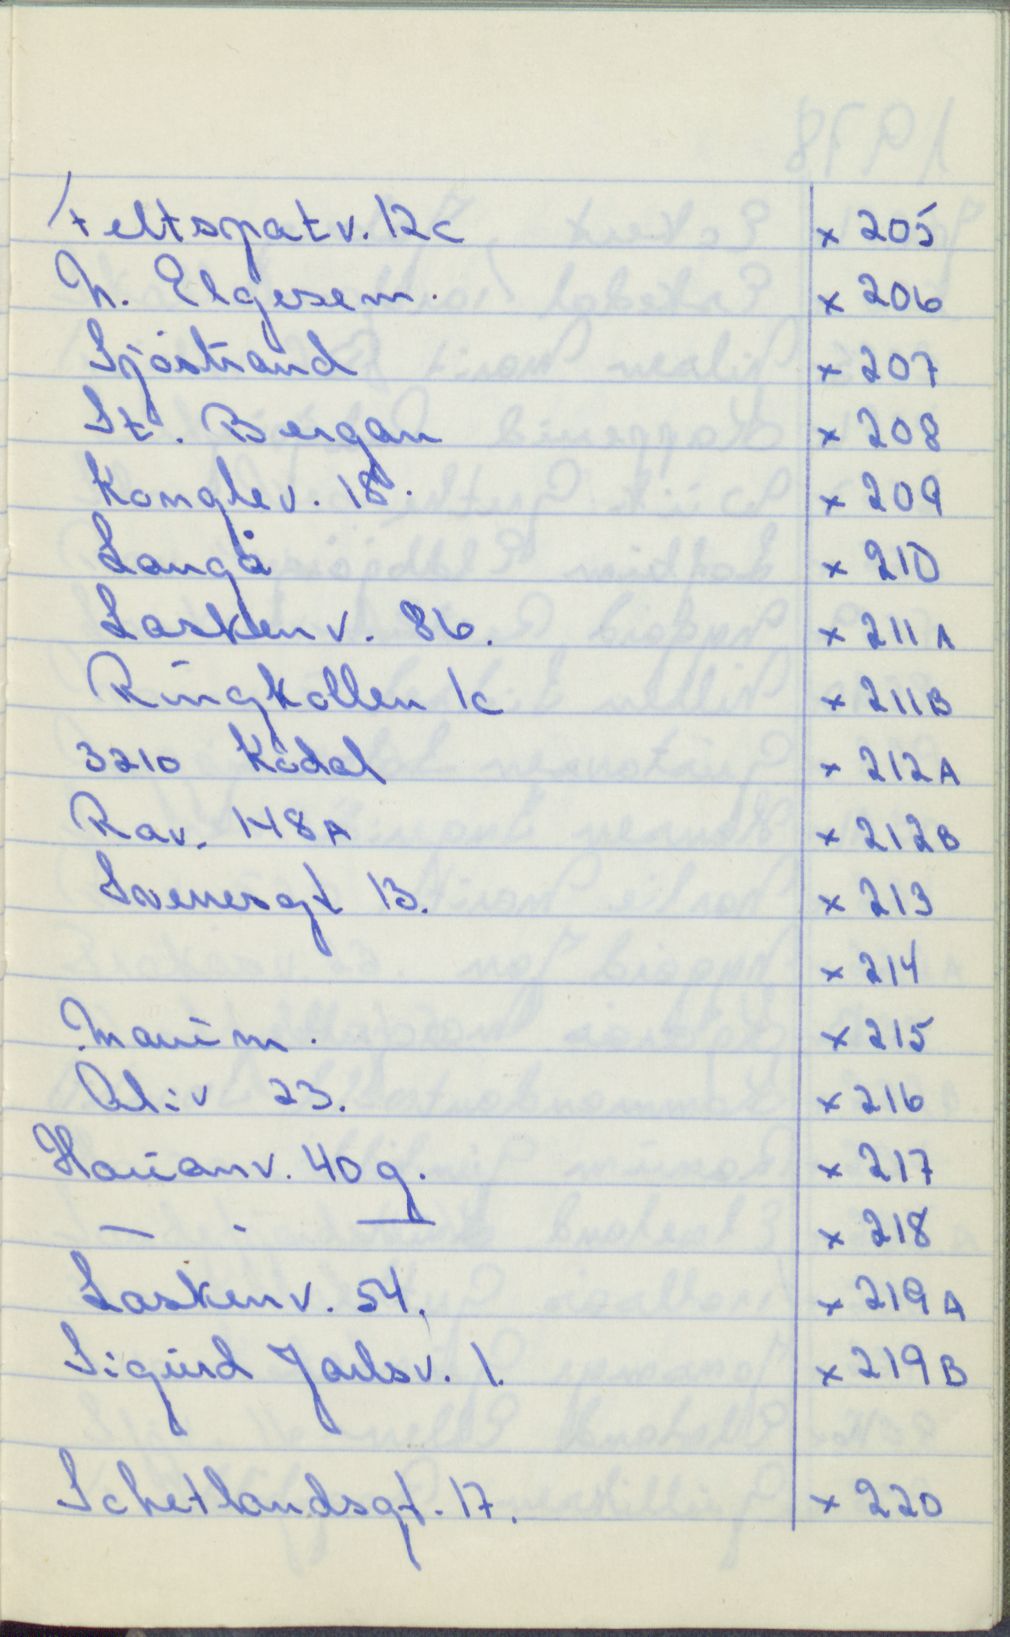 Feltspatv. 12c x 205
N. Elgesem. x 206
Sjöstrand x 207
St. Bergan x 208
Konglev. 18. x 209
Langå x 210
Laskenv. 86. x 211A
Ringkollen 1c x 211B
3210 Kodal x 212A
Rav. 148A x 212B
Sverresgt 13. x 213
x 214
x 215
x 216
Havanv. 40 g. x 217
— - — x 218
Laskenv. 54. x 219A
Sigurd Jarlsv. 1. x 219B
Schetlandsgt. 17. x 220